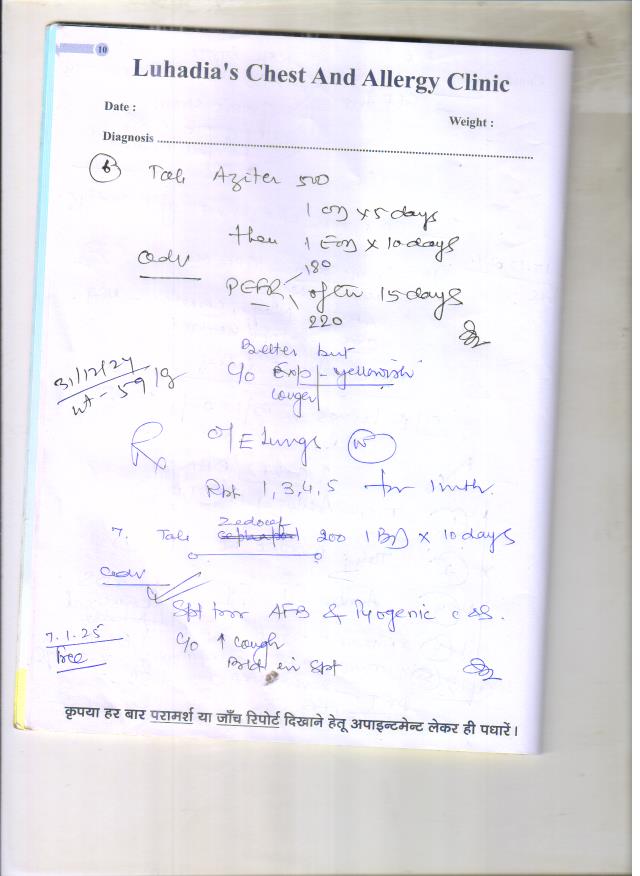 10
Luhadia's Chest And Allergy Clinic
Date :
Weight :
Diagnosis
6 Tab Aziter 500
1 OD x 5 days
then 1 EOD x 10 days
adv
180
PEFR after 15 days
220
Better but
31/12/24
c/o Exp - yellowish
wt - 59 kg
cough
Rx O/E Lungs
Rpt 1, 3, 4, 5 for 1 mth.
7. Tab Zedocef 200 1 BD x 10 days
adv
Spt for AFB & Pyogenic c &S.
7.1.25
c/o ↑ cough
free
Bld in Spt
कृपया हर बार परामर्श या जाँच रिपोर्ट दिखाने हेतू अपाइन्टमेन्ट लेकर ही पधारें।